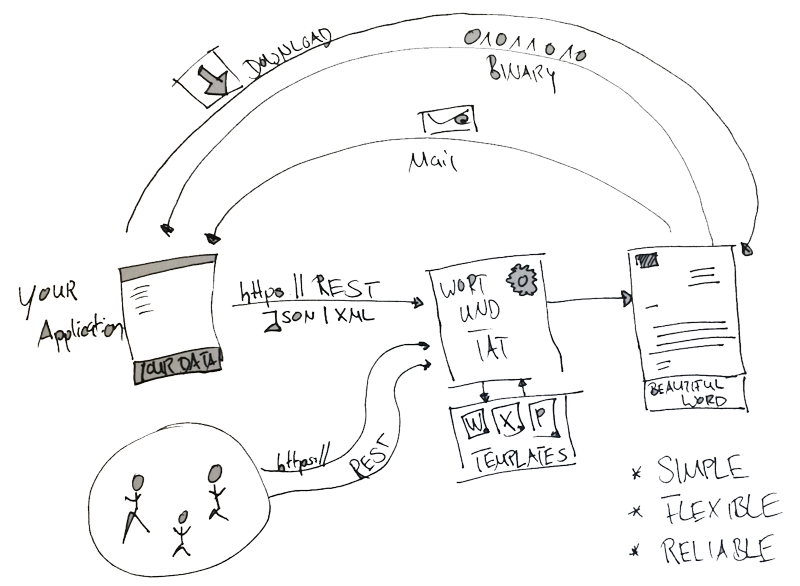 DOWNLOAD
01011 0 10
BINARY
Mail
YOUR
Application
YOUR DATA
https// REST
JSON | XML
WORT
UND
TAT
https//
REST
W X P
TEMPLATES
BEAUTIFUL
WORD
* SIMPLE
* FLEXIBLE
* RELIABLE